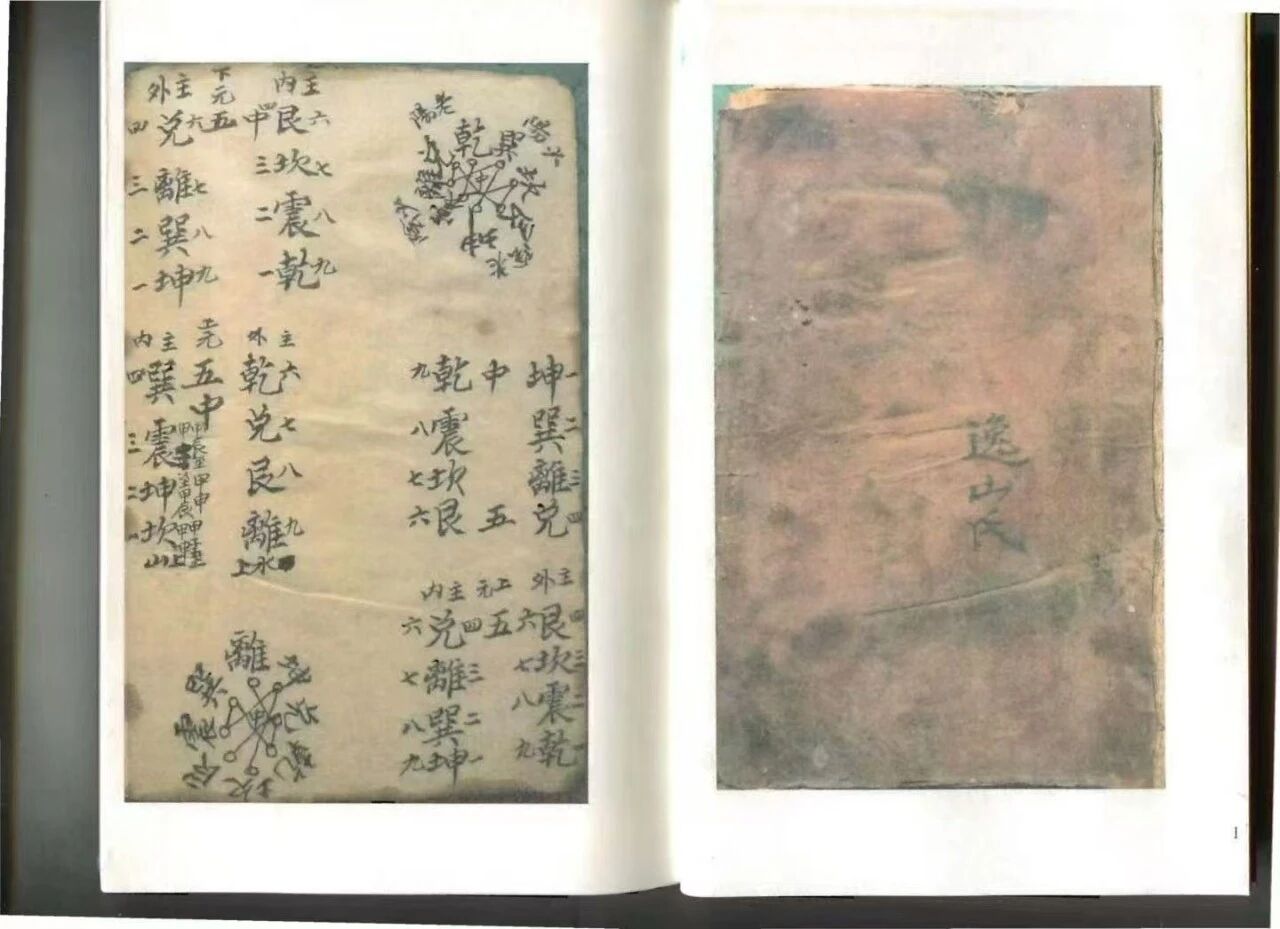 逸山氏
老陽
乾
巽
坎
離
中
坤一
巽二
離三
兌四
中
五
乾九
震八
坎七
艮六
主外
四艮六
三坎七
二震八
一乾九
上元
五
主内
四兌六
三離七
二巽八
一坤九
主内
四艮六
三坎七
二震八
一乾九
中
下元
五
主外
四兌六
三離七
二巽八
一坤九
主外
乾六
兌七
艮八
離九
水上
五中
主内
四巽
三震
二坤
一坎
山上
離
巽
震
艮
坎
乾
兌
中
1